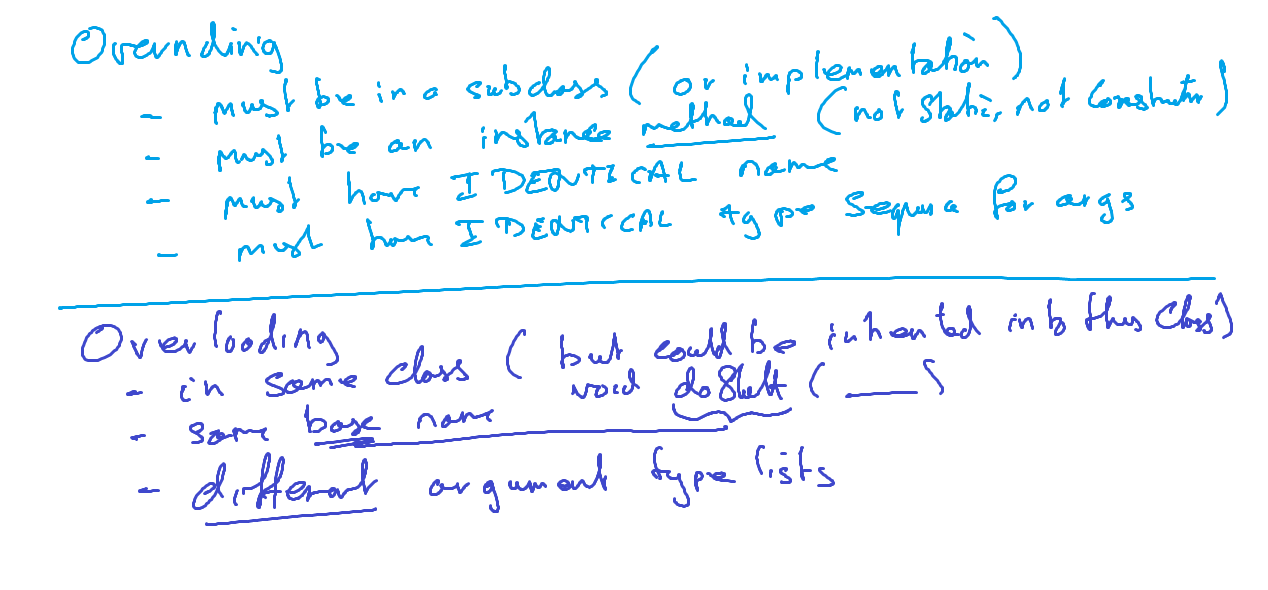 Overriding
- must be in a subclass (or implementation)
- must be an instance method (not static, not constructor)
- must have IDENTICAL name
- must have IDENTICAL type sequence for args
Overloading
- in same class (but could be inherited into this class)
- same base name void doStuff ( ___ )
- different argument type lists